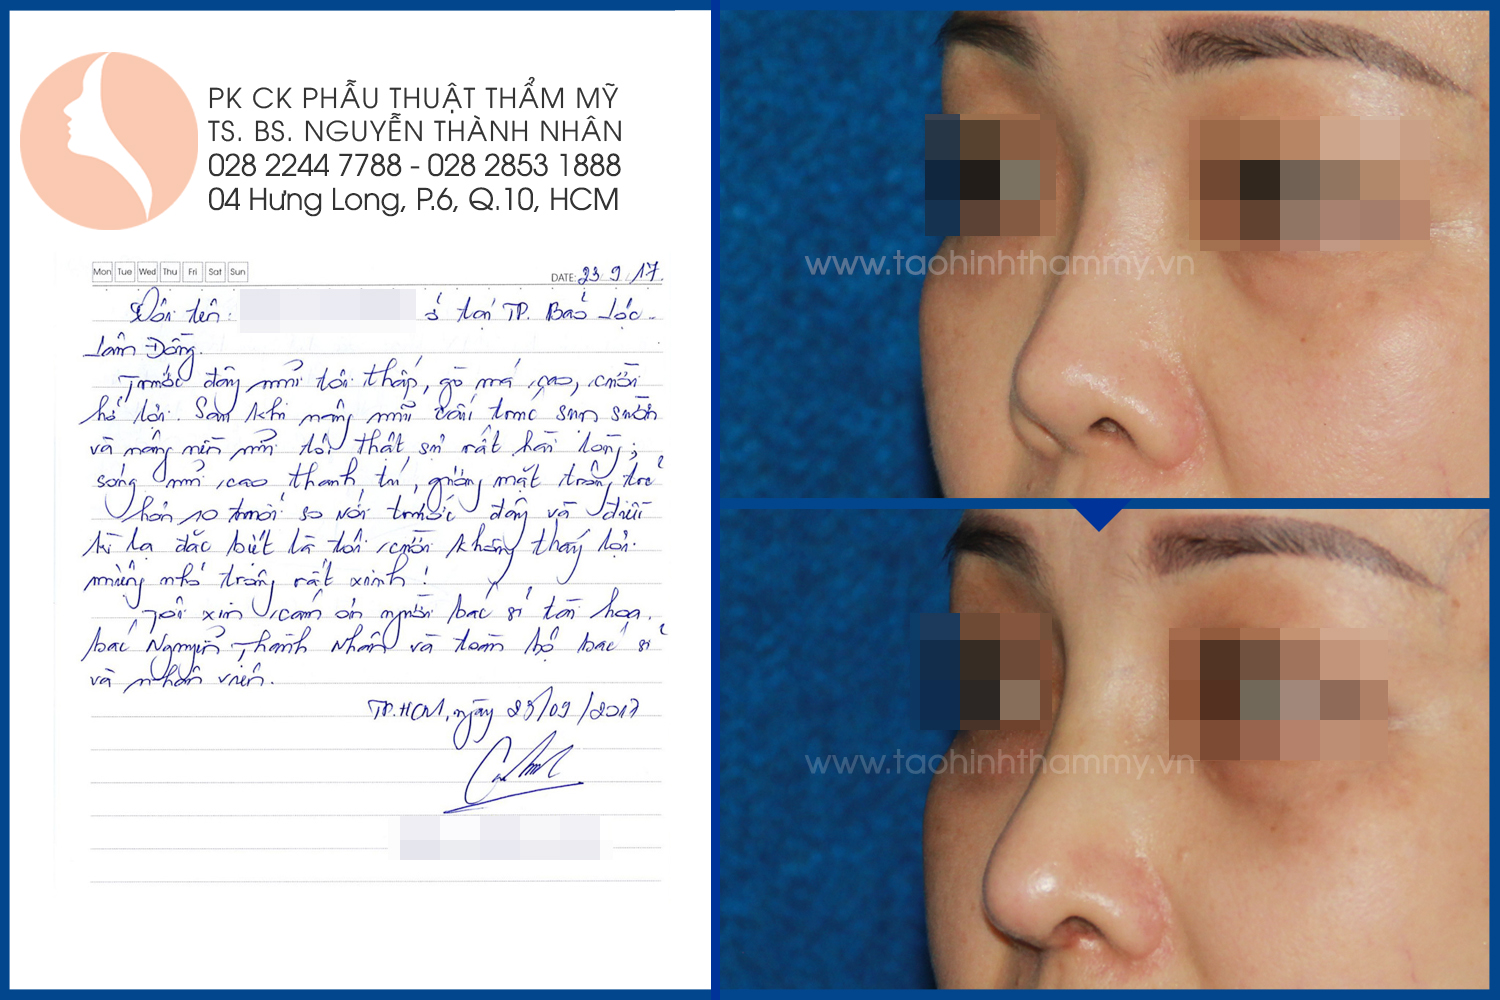 PK CK PHẪU THUẬT THẨM MỸ
TS. BS. NGUYỄN THÀNH NHÂN
028 2244 7788 - 028 2853 1888
04 Hưng Long, P.6, Q.10, HCM
Mon Tue Wed Thu Fri Sat Sun
DATE: 23 9 17
Tôi tên: ở tại TP. Bảo Lộc -
Lâm Đồng.
Trước đây mũi tôi thấp, gò má cao, cười
hở lợi. Sau khi nâng mũi cấu trúc sụn sườn
và nâng nền mũi tôi thật sự rất hài lòng;
sóng mũi cao thanh tú, gương mặt trông trẻ
hơn 10 tuổi so với trước đây và điều
kì lạ đặc biệt là tôi cười không thấy lợi.
miệng nhỏ trông rất xinh!
Tôi xin cám ơn người bác sĩ tài hoa,
bác Nguyễn Thành Nhân và toàn bộ bác sĩ
và nhân viên.
TP.HCM, ngày 23/09/2017
www.taohinhthammy.vn
www.taohinhthammy.vn